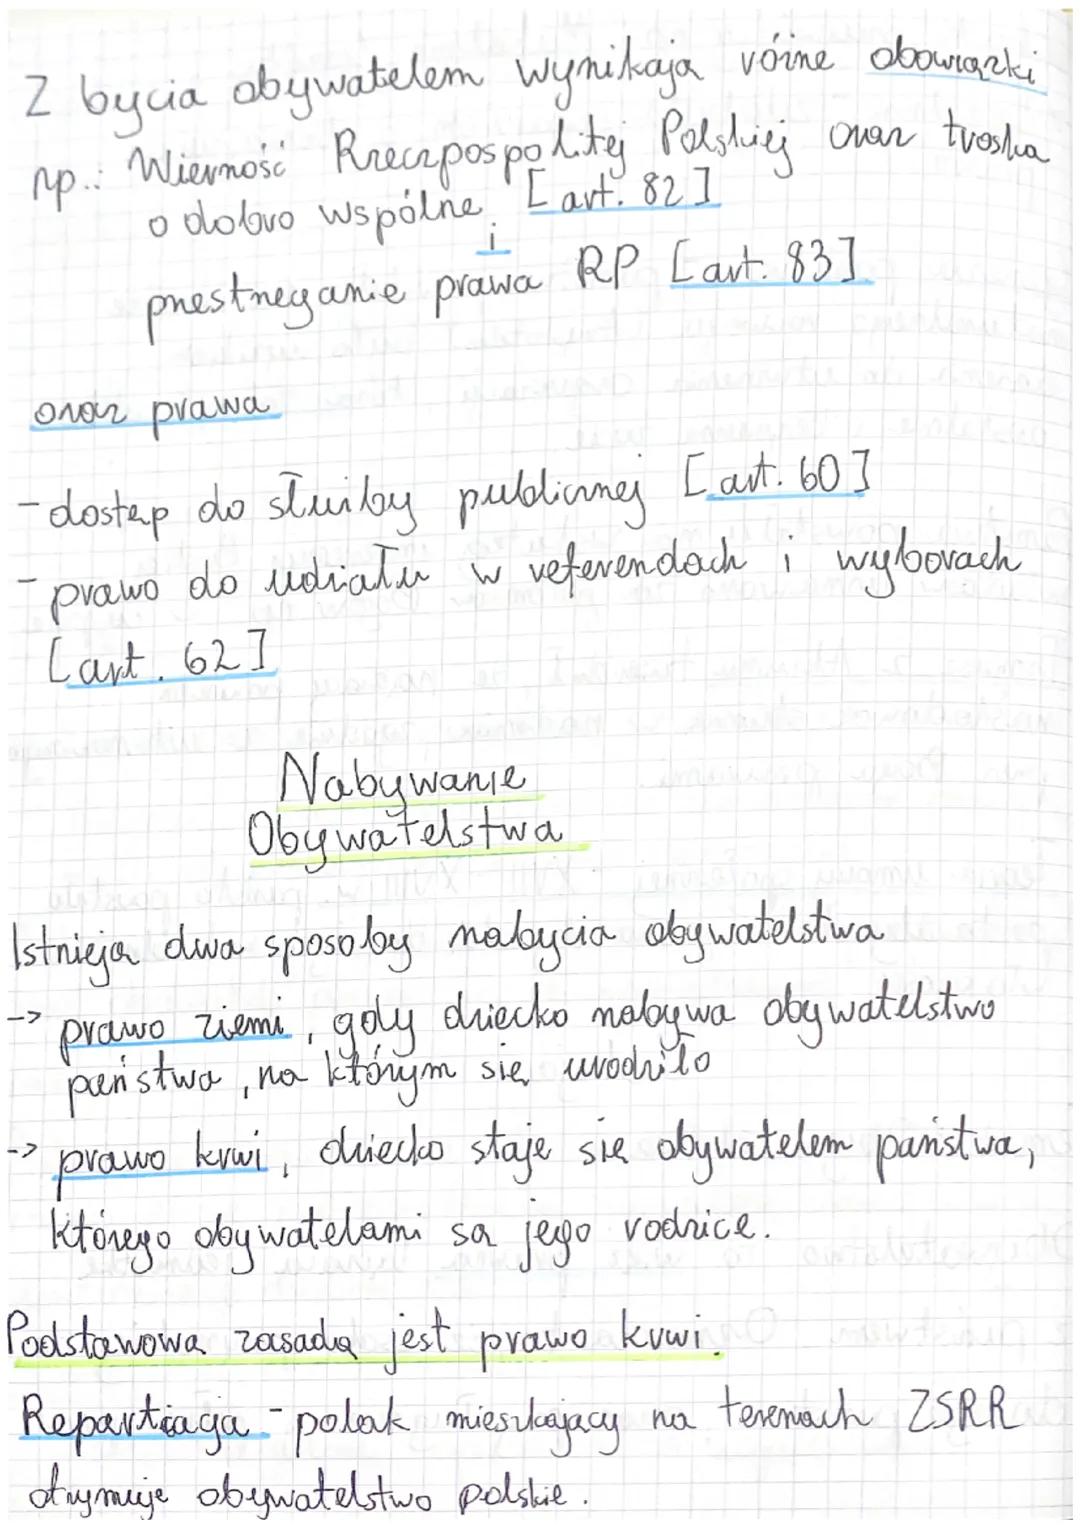 Z bycia obywatelem wynikają różne obowiązki
np.: Wierność Rzeczpospolitej Polskiej oraz troska
o dobro wspólne [art. 82]
i
przestrzeganie prawa RP [art. 83]
oraz prawa
- dostęp do służby publicznej [art. 60]
- prawo do udziału w referendach i wyborach
[art. 62]
Nabywanie
Obywatelstwa
Istnieją dwa sposoby nabycia obywatelstwa
-> prawo ziemi, gdy dziecko nabywa obywatelstwo
państwa, na którym się urodziło
-> prawo krwi, dziecko staje się obywatelem państwa,
którego obywatelami są jego rodzice.
Podstawową zasadą jest prawo krwi.
Repartiacja - polak mieszkający na terenach ZSRR
otrzymuje obywatelstwo polskie.